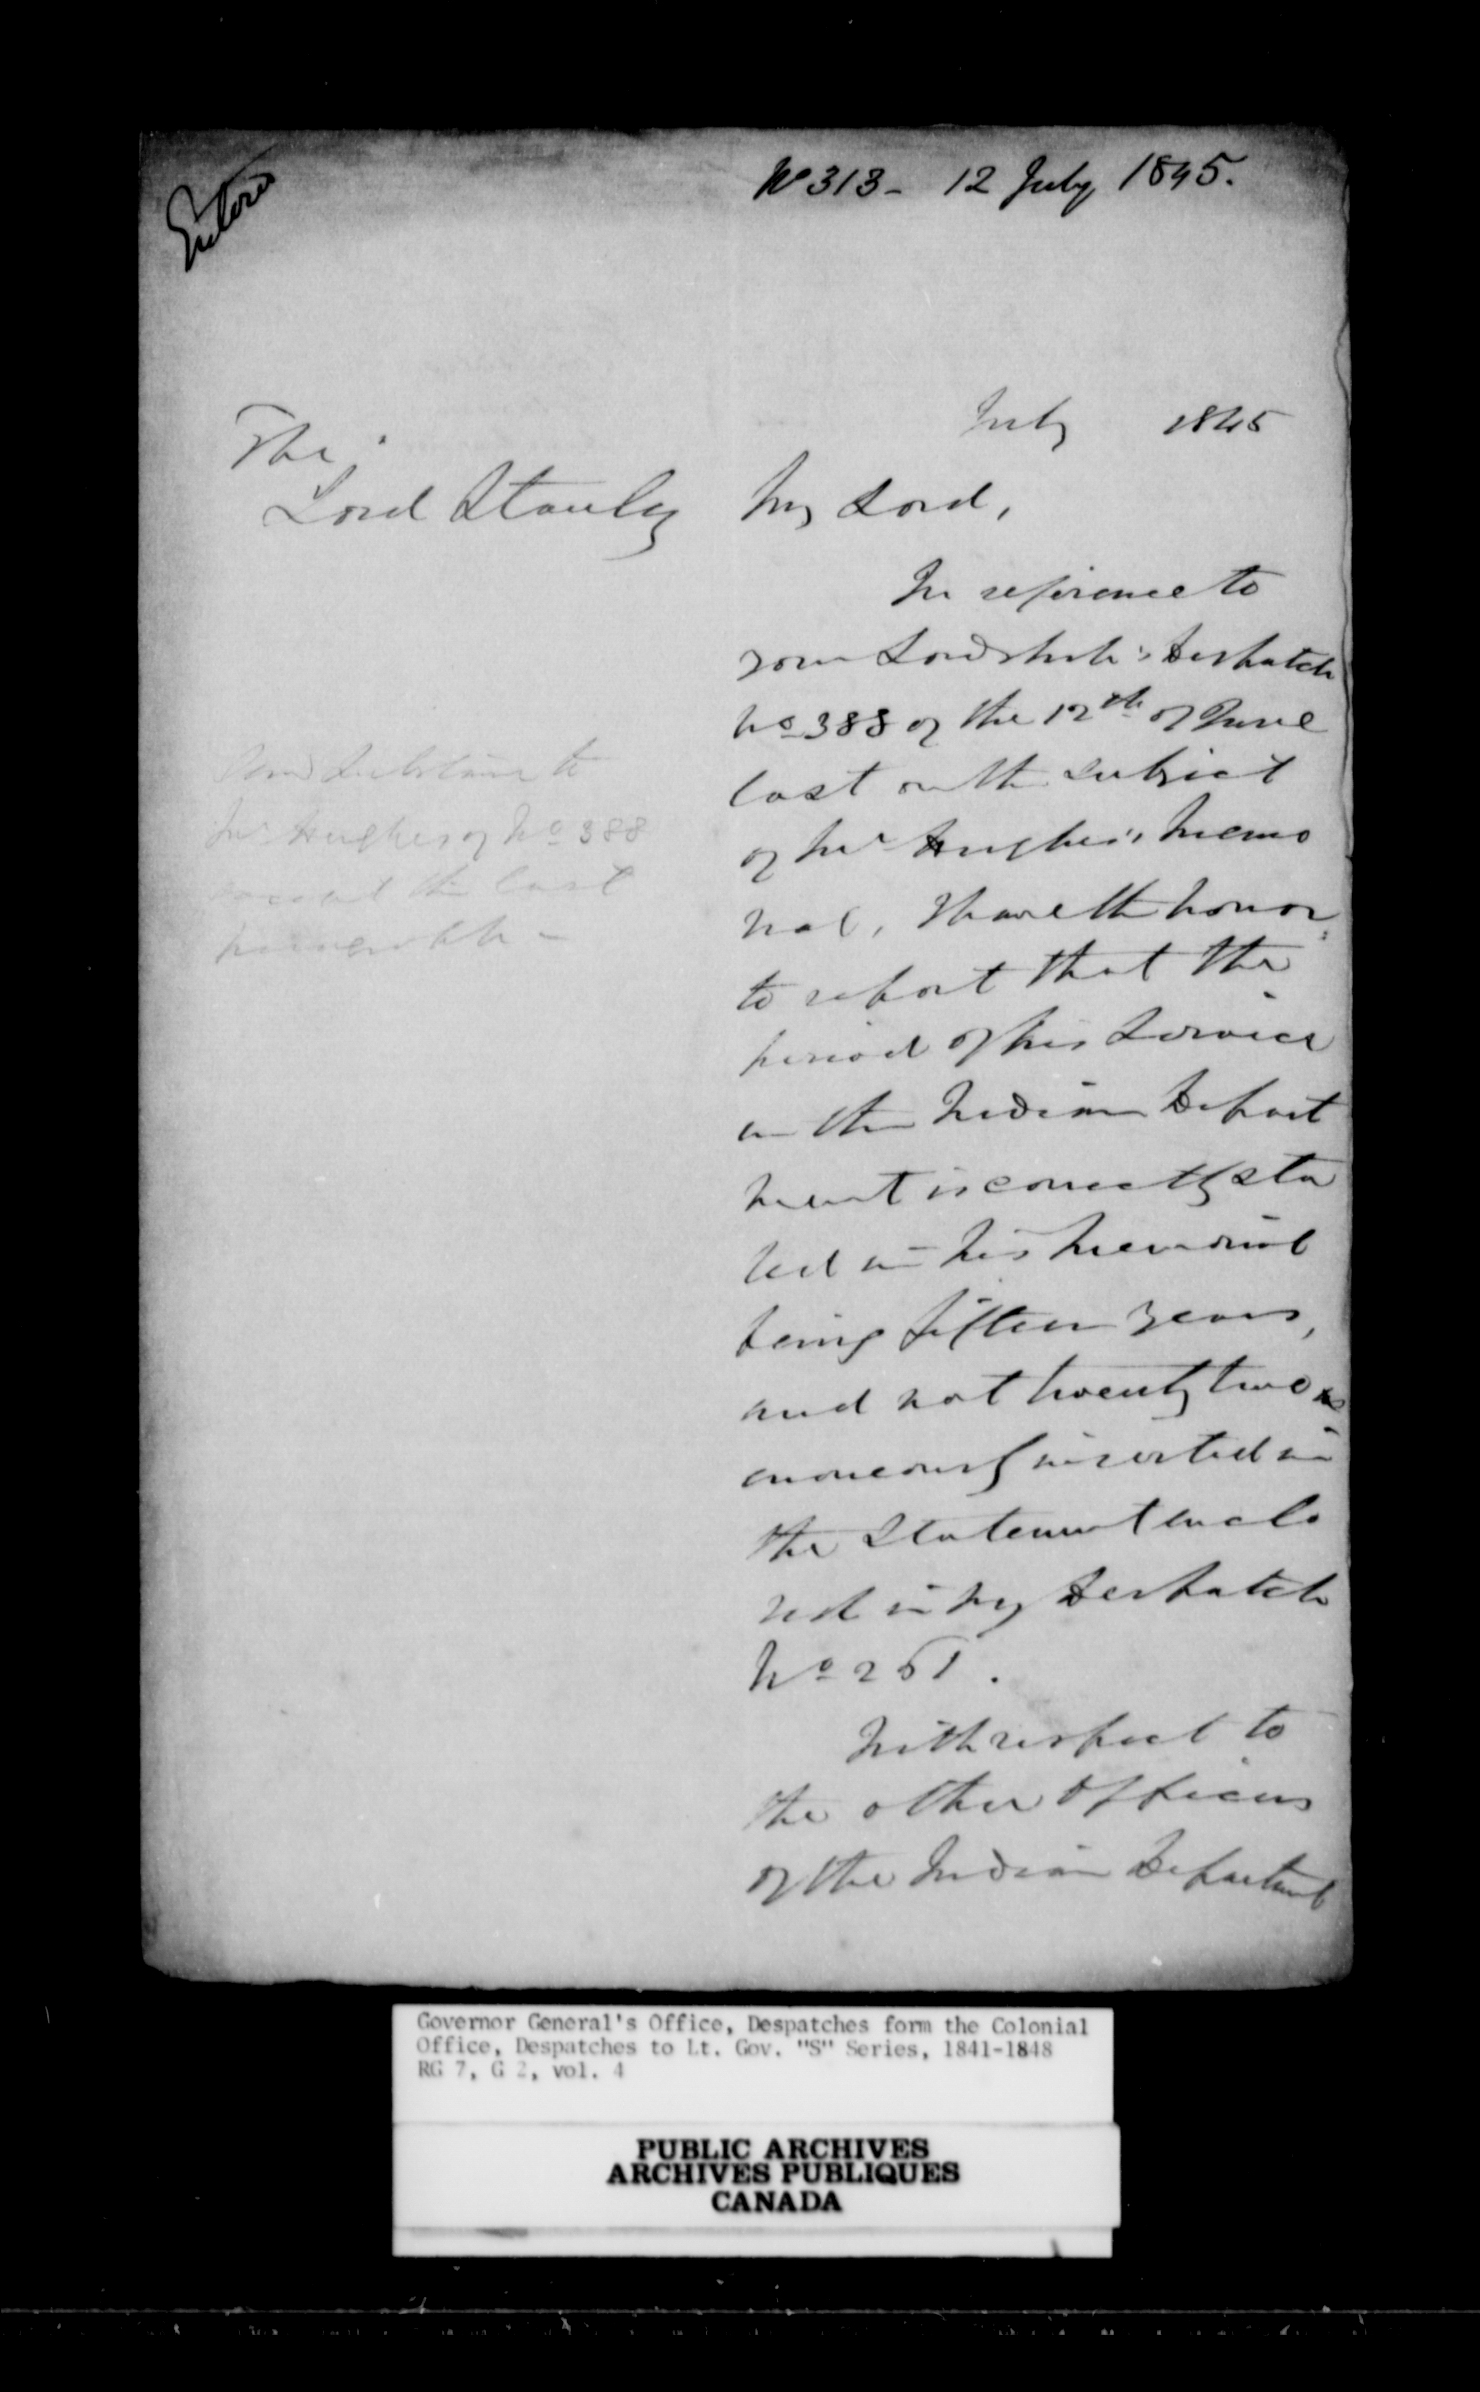 Entered
No 313 - 12 July 1845.
July 1845
The
Lord Stanley
My Lord,
In reference to
your Lordship's Despatch
No 388 of the 12th of June
last on the subject
of Mr Hughes's Memo
rial, I have the honor
to report that the
period of his Service
in the Indian Depart
ment is correctly sta
ted in his Memorial
being fifteen years,
and not twenty two as
erroneously inserted in
the Statement enclo
sed in my Despatch
No 251.
With respect to
the other Officers
of the Indian Department
Send Substance to
Mr Hughes of No 388
except the last
paragraph -
Governor General's Office, Despatches form the Colonial
Office, Despatches to Lt. Gov. "S" Series, 1841-1848
RG 7, G 2, vol. 4
PUBLIC ARCHIVES
ARCHIVES PUBLIQUES
CANADA